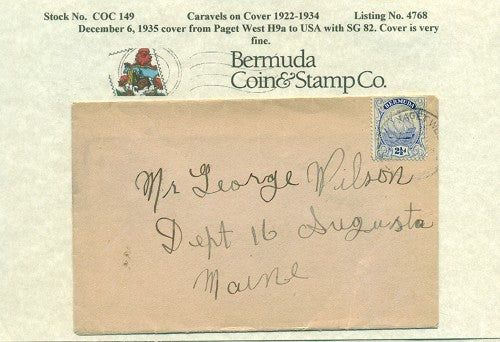 Stock No. COC 149 Caravels on Cover 1922-1934 Listing No. 4768
December 6, 1935 cover from Paget West H9a to USA with SG 82. Cover is very
fine.
Bermuda
Coin&Stamp Co.
BERMUDA
2½d
PAGET WE
Mr George Wilson
Dept 16 Augusta
Maine